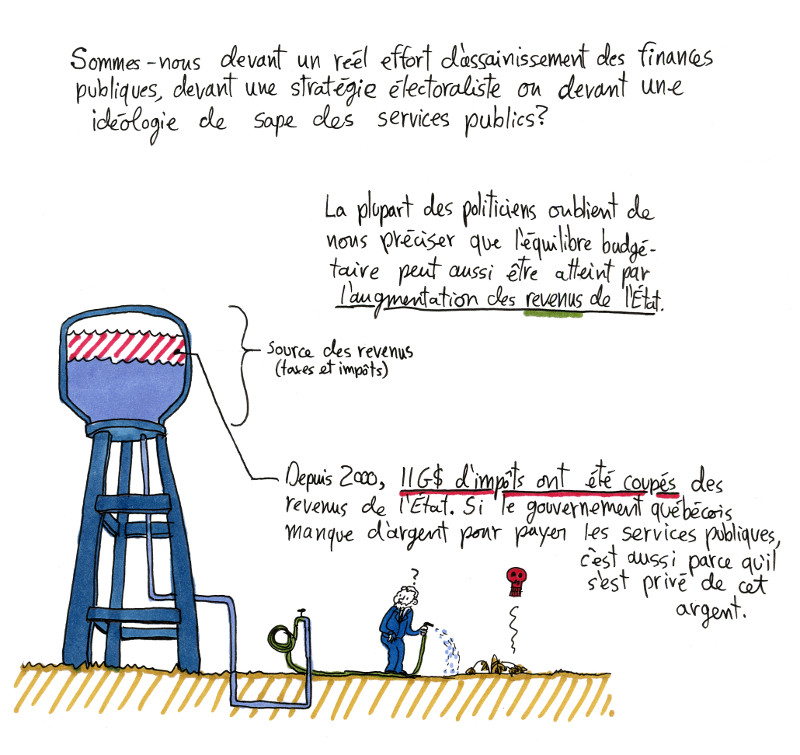 Sommes-nous devant un réel effort d'assainissement des finances
publiques, devant une stratégie électoraliste ou devant une
idéologie de sape des services publics?
La plupart des politiciens oublient de
nous préciser que l'équilibre budgé-
taire peut aussi être atteint par
l'augmentation des revenus de l'État.
Source des revenus
(taxes et impôts)
Depuis 2000, 11G$ d'impôts ont été coupés des
revenus de l'État. Si le gouvernement québécois
manque d'argent pour payer les services publiques,
c'est aussi parce qu'il
s'est privé de cet
argent.
?